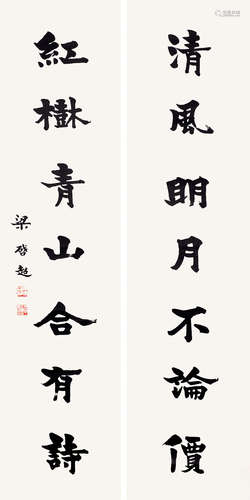 清風朙月不論價
紅樹青山合有詩
梁啓超